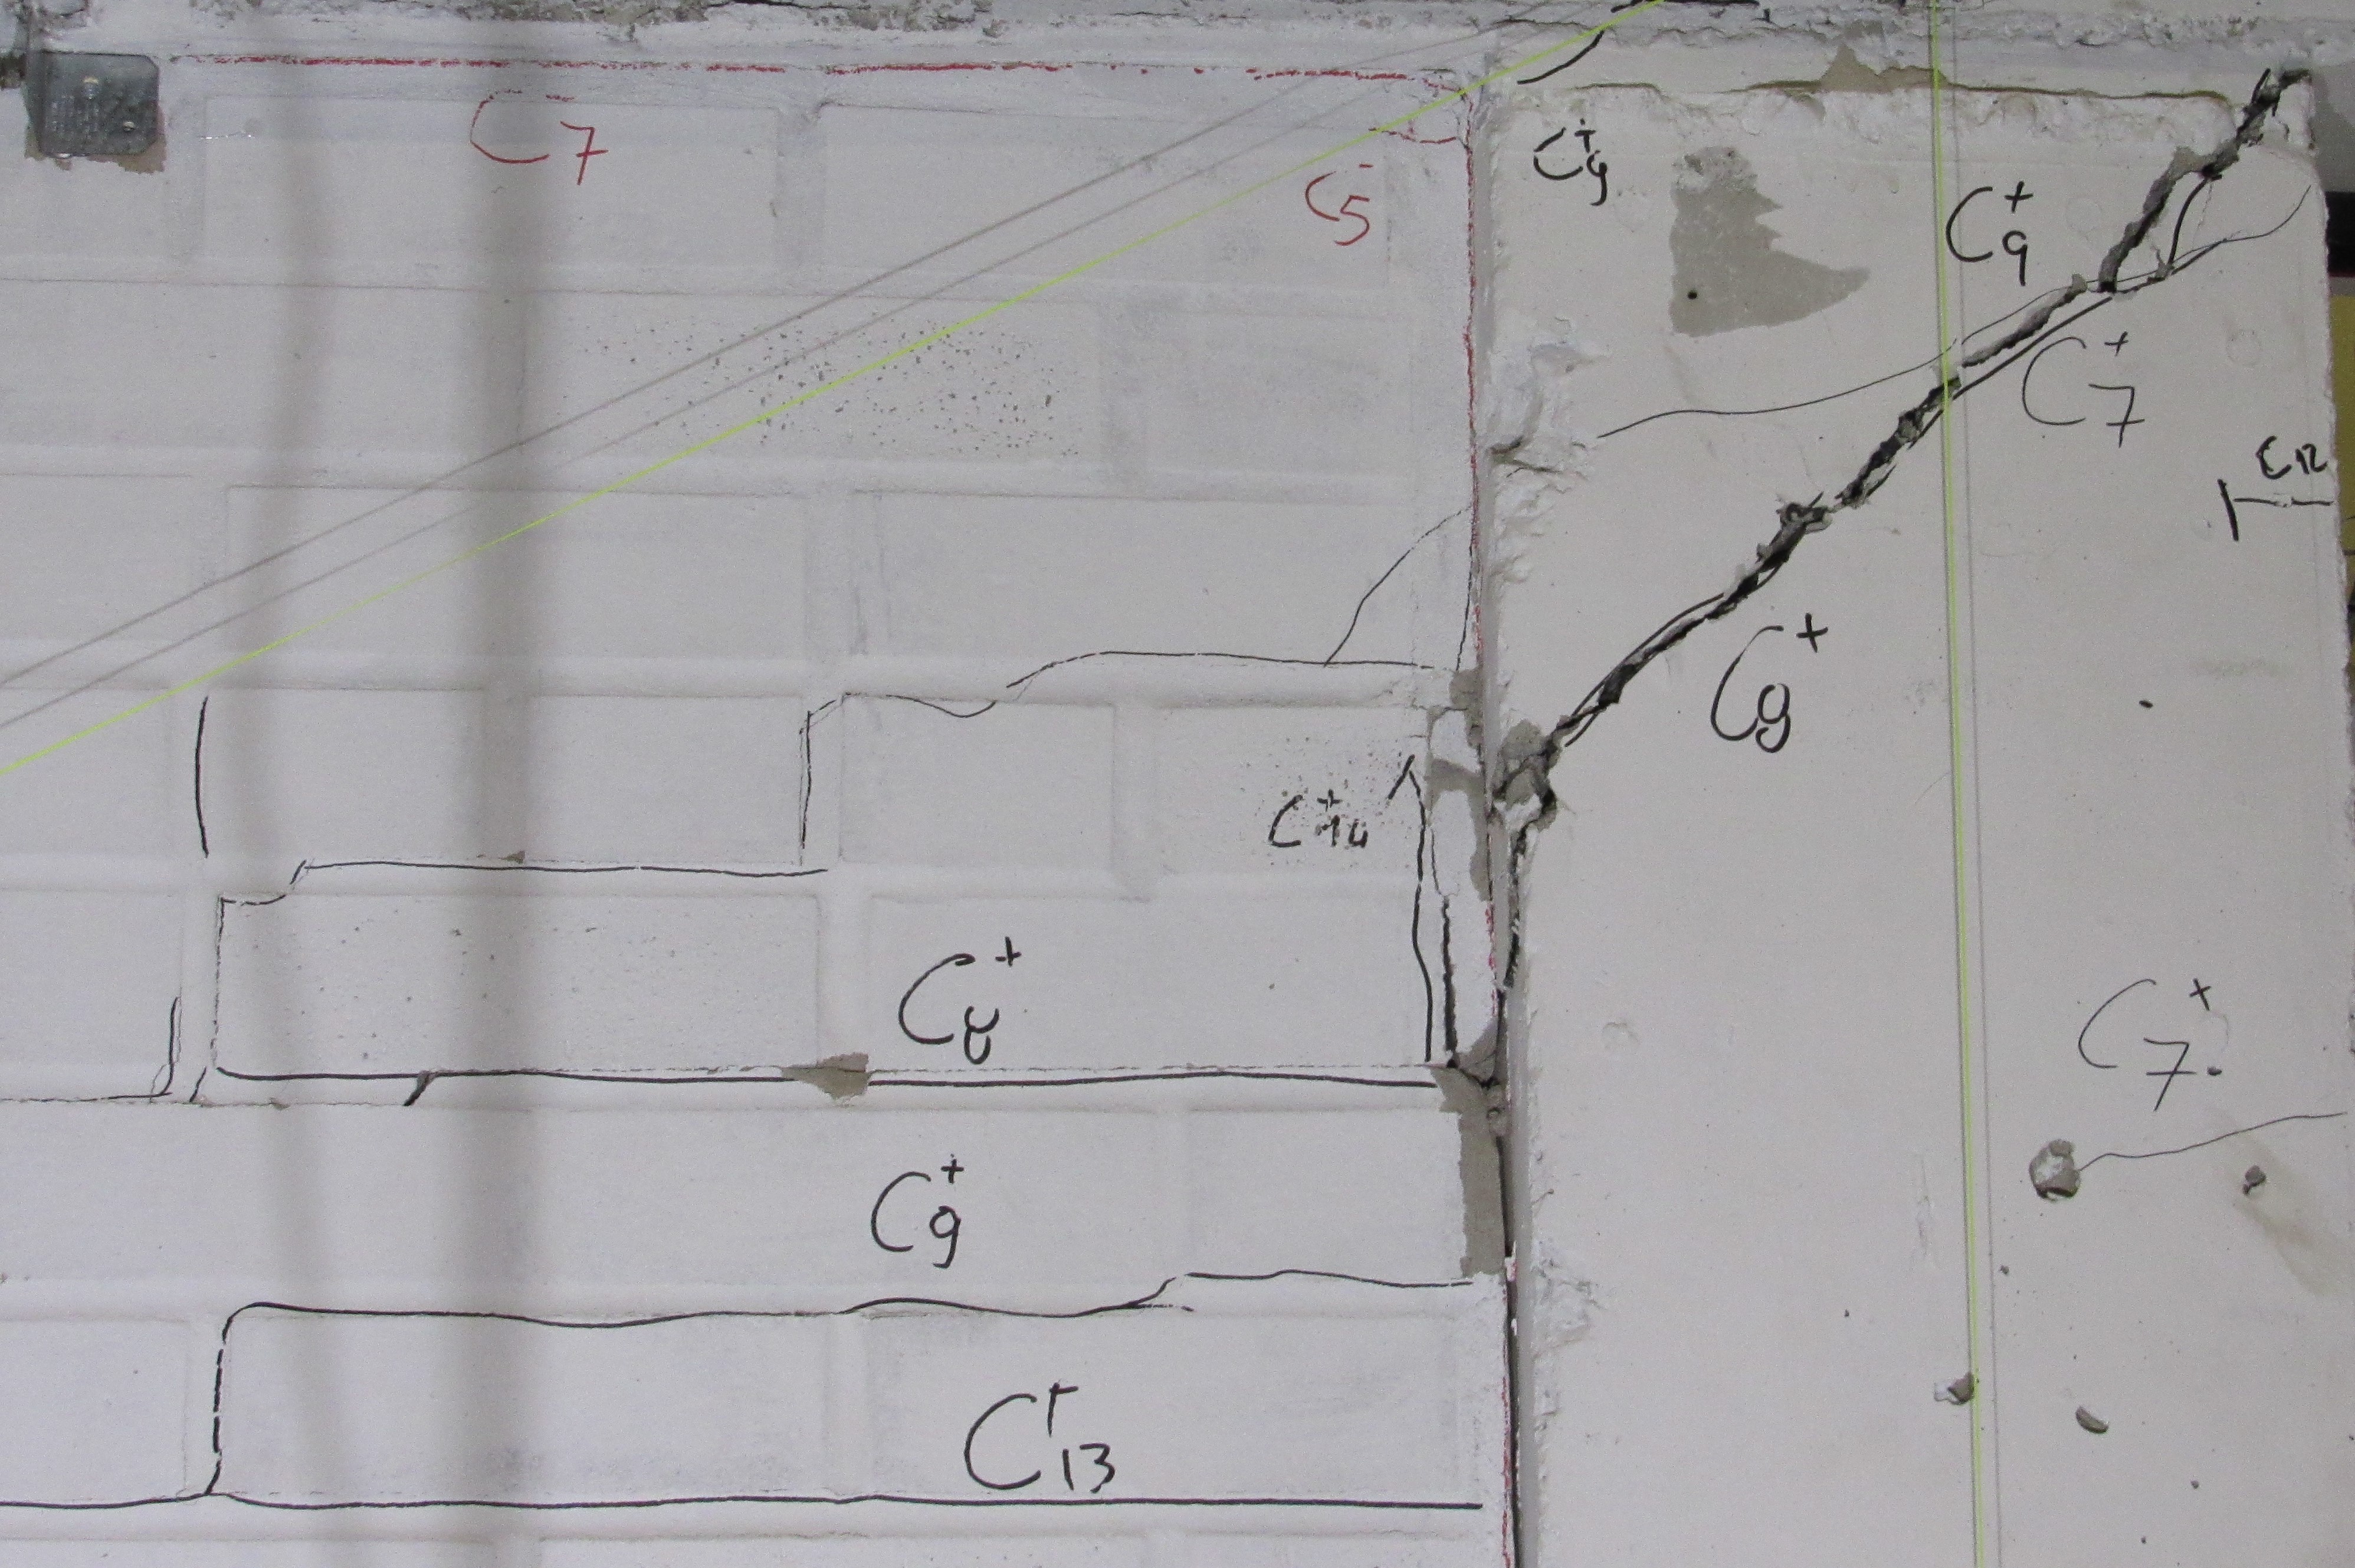 C7
C5-
C9+
C9+
C7+
C9+
C14+
C8+
C7+
C9+
C13+